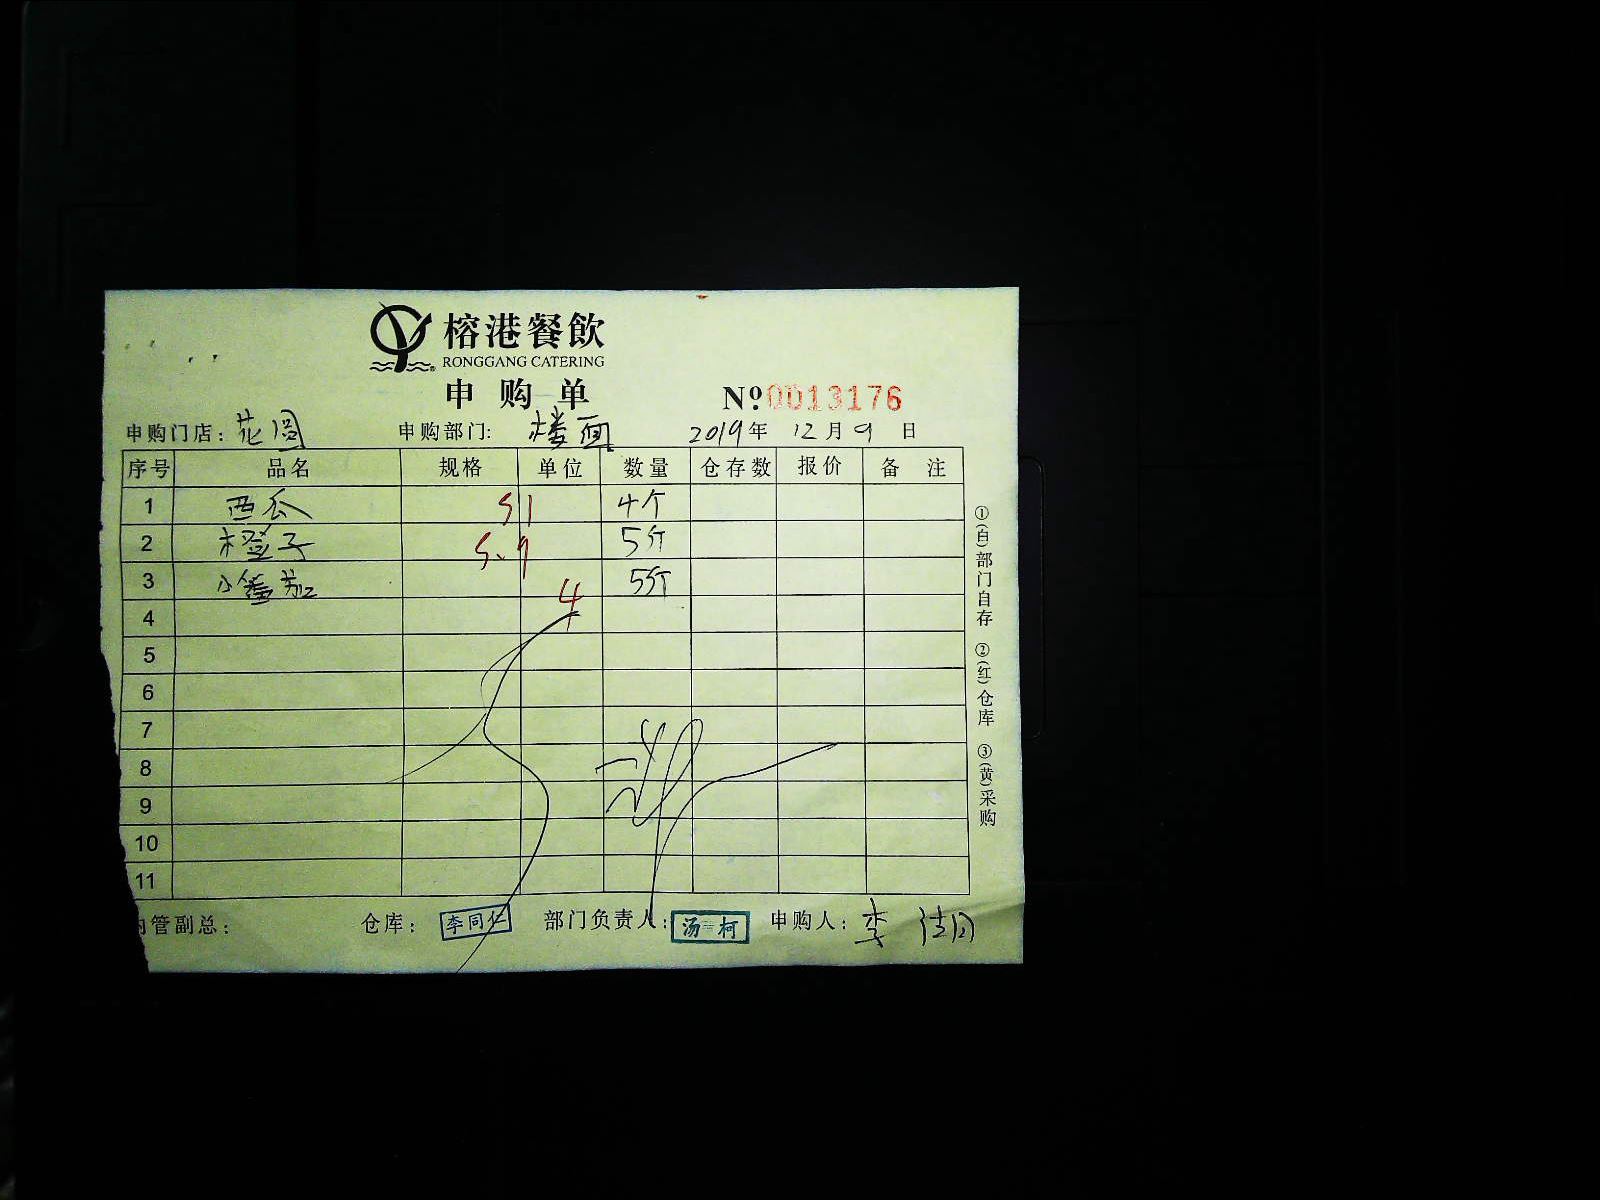 榕港餐飲
RONGGANG CATERING
申购单
Nº 0013176
申购门店: 花园 申购部门: 楼面 2019年 12月 9日
序号 品名 规格 单位 数量 仓存数 报价 备注
1 西瓜 51 4个
2 橙子 5.9 5斤
3 小番茄 4 5斤
4
5
6
7
8
9
10
11
管副总: 仓库: 李同仁 部门负责人: 汤柯 申购人: 李
①(白)部门自存 ②(红)仓库 ③(黄)采购